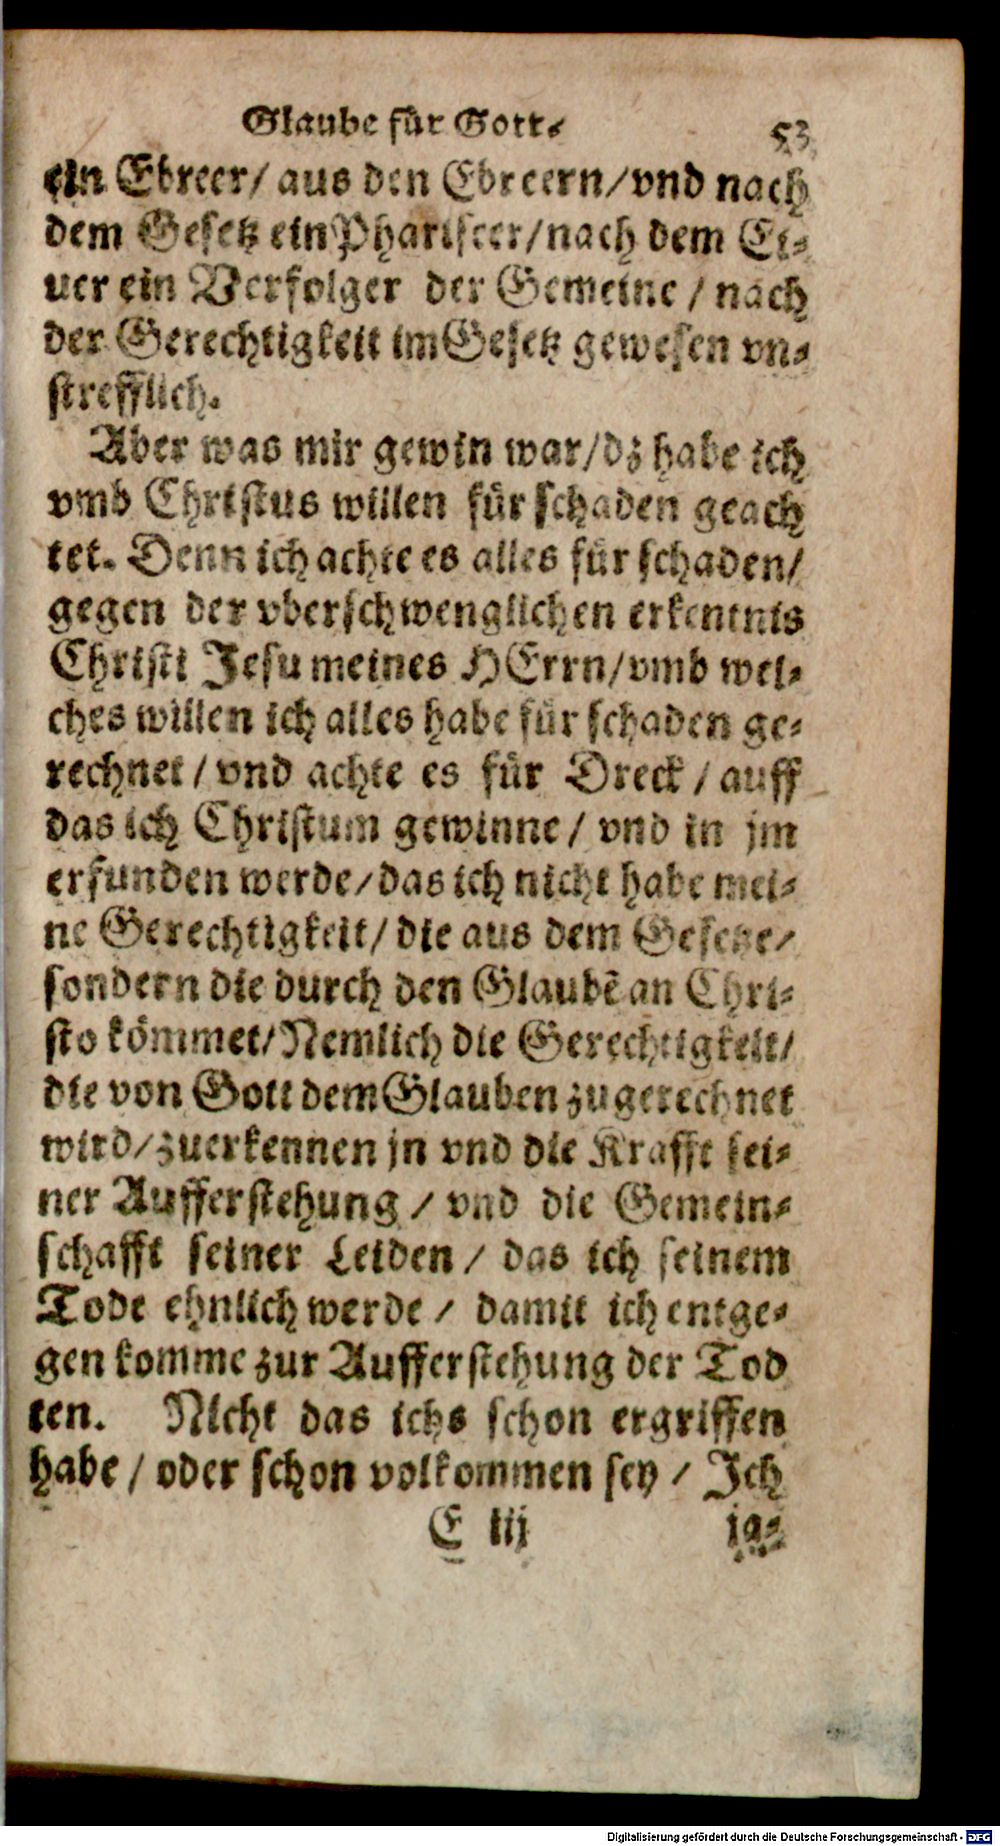 Glaube für Gott⸗ 53
ein Ebreer/ aus den Ebreern/ vnd nach
dem Gesetz ein Phariseer/ nach dem Ei⸗
uer ein Verfolger der Gemeine / nach
der Gerechtigkeit im Gesetz gewesen vn⸗
strefflich.
Aber was mir gewin war/ dz habe ich
vmb Christus willen für schaden geach
tet. Denn ich achte es alles für schaden/
gegen der vberschwenglichen erkentnis
Christi Jesu meines HErrn/ vmb wel⸗
ches willen ich alles habe für schaden ge⸗
rechnet / vnd achte es für Dreck / auff
das ich Christum gewinne / vnd in jm
erfunden werde/ das ich nicht habe mei⸗
ne Gerechtigkeit/ die aus dem Gesetze/
sondern die durch den Glaubē an Chri⸗
sto kömmet/ Nemlich die Gerechtigkeit/
die von Gott dem Glauben zugerechnet
wird/ zuerkennen jn vnd die Krafft sei⸗
ner Aufferstehung / vnd die Gemein⸗
schafft seiner Leiden / das ich seinem
Tode ehnlich werde / damit ich entge⸗
gen komme zur Aufferstehung der Tod
ten. Nicht das ichs schon ergriffen
habe / oder schon volkommen sey / Jch
E iij ja⸗
Digitalisierung gefördert durch die Deutsche Forschungsgemeinschaft - DFG